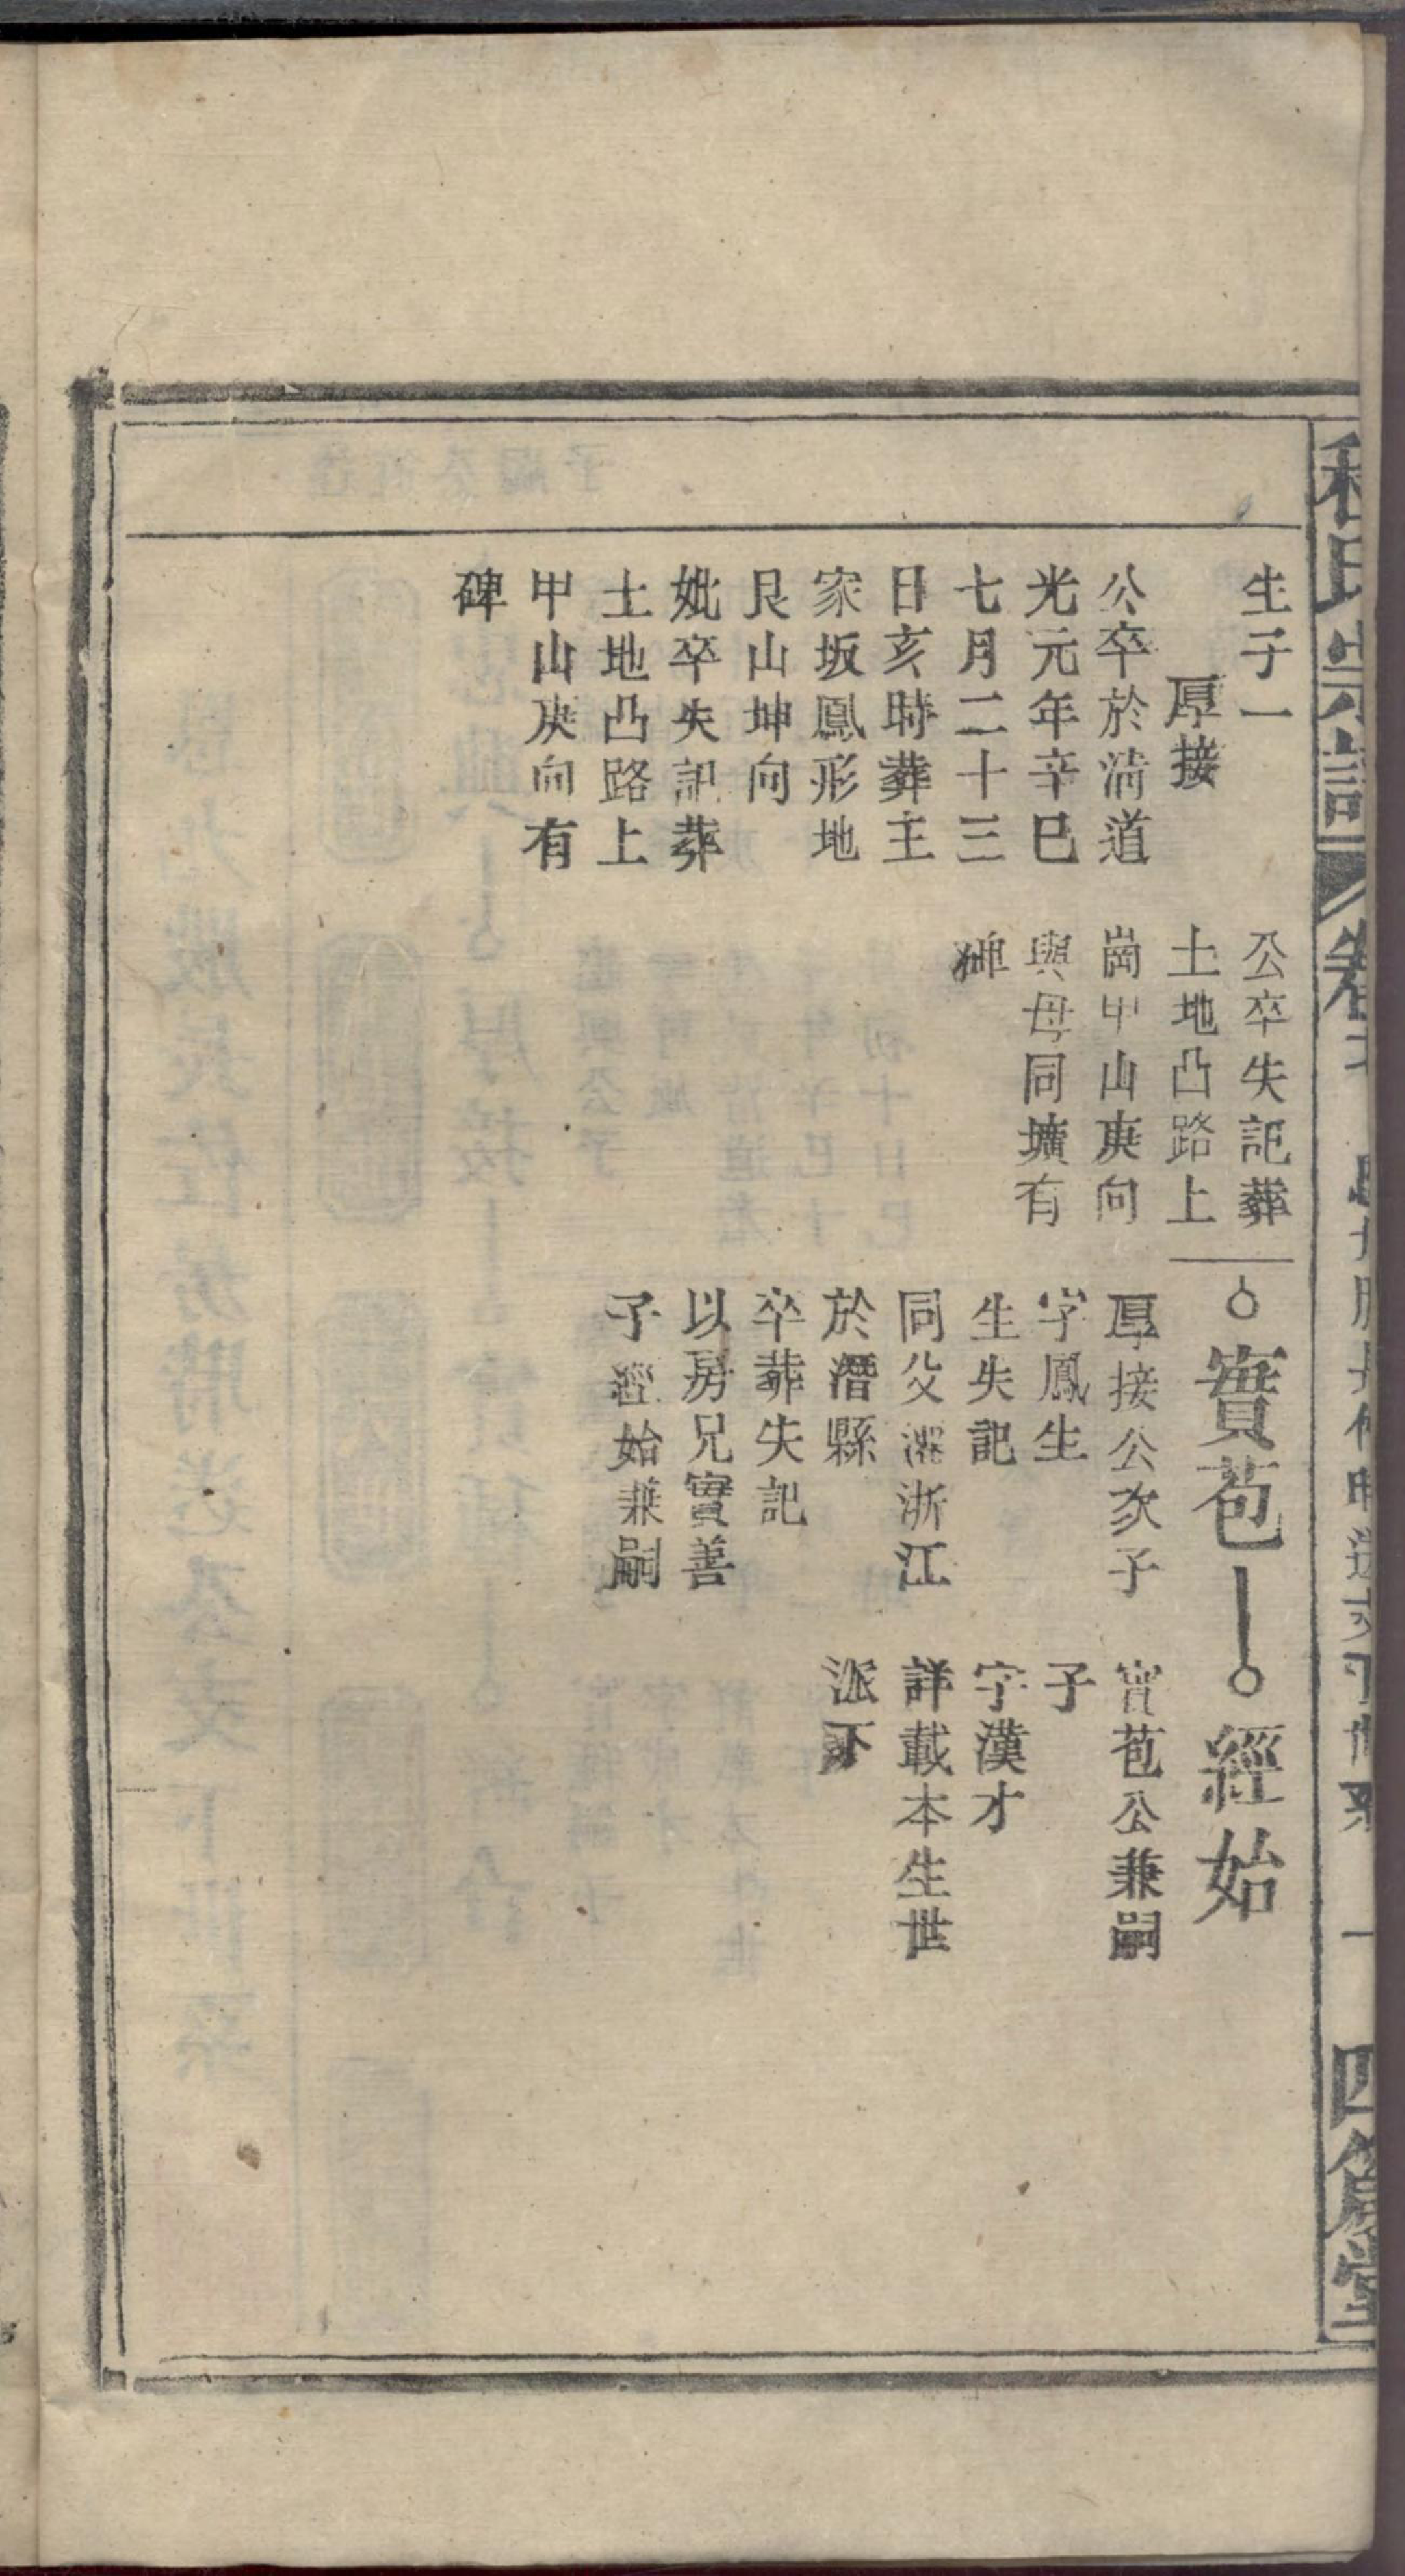 生子一
厚接
公卒於清道
光元年辛巳
七月二十三
日亥時葬主
家坂鳳形地
艮山坤向
妣卒失記葬
土地凸路上
甲山庚向有
碑
公卒失記葬
土地凸路上
崗甲山庚向
與母同壙有
碑
實苞
厚接公次子
字鳳生
生失記
同父遷浙江
於潛縣
卒葬失記
以房兄實善
子經始兼嗣
經始
實苞公兼嗣
子
字漢才
詳載本生世
派下
氏宗譜
卷
一
四箴堂